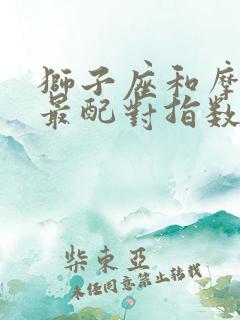 獅子座和摩
最配對指數
柴東亞
未經同意禁止轉載